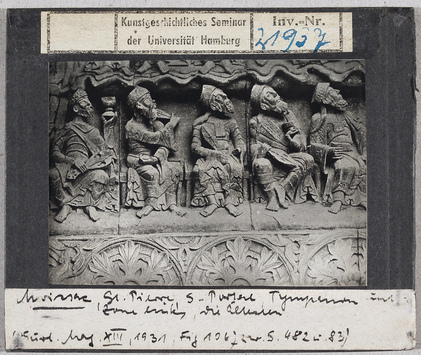 Kunstgeschichtliches Seminar
der Universität Hamburg
Inv.-Nr.
21927
Moissac, St. Pierre, S-Portal Tympanon
Zone links, die Ältesten
XIII, 1931, Fig 106 S. 482 u. 83)